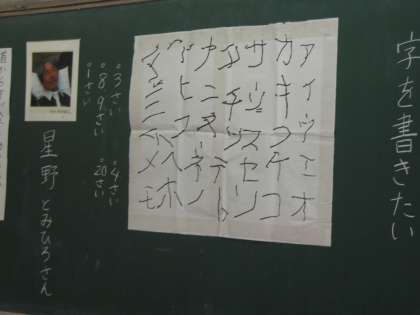 字を書きたい
アイウエオ
カキクケコ
サシスセソ
タチツテト
ナニヌネノ
ハヒフヘホ
マミムメモ
・3さい ・4さい
・8,9さい ・20さい
・1さい
星野とみひろさん